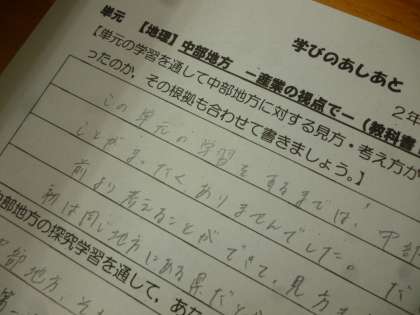 学びのあしあと
単元 【地理】中部地方 ー産業の視点でー (教科書
2年
【単元の学習を通して中部地方に対する見方・考え方が
ったのか、その根拠も合わせて書きましょう。】
この単元の学習をするまでは、中部
ことがまったくありませんでした。だ
前より考えることができて、見方も
初は同じ地方にある県だと
中部地方の探究学習を通して、あな
部地方、そ
第一